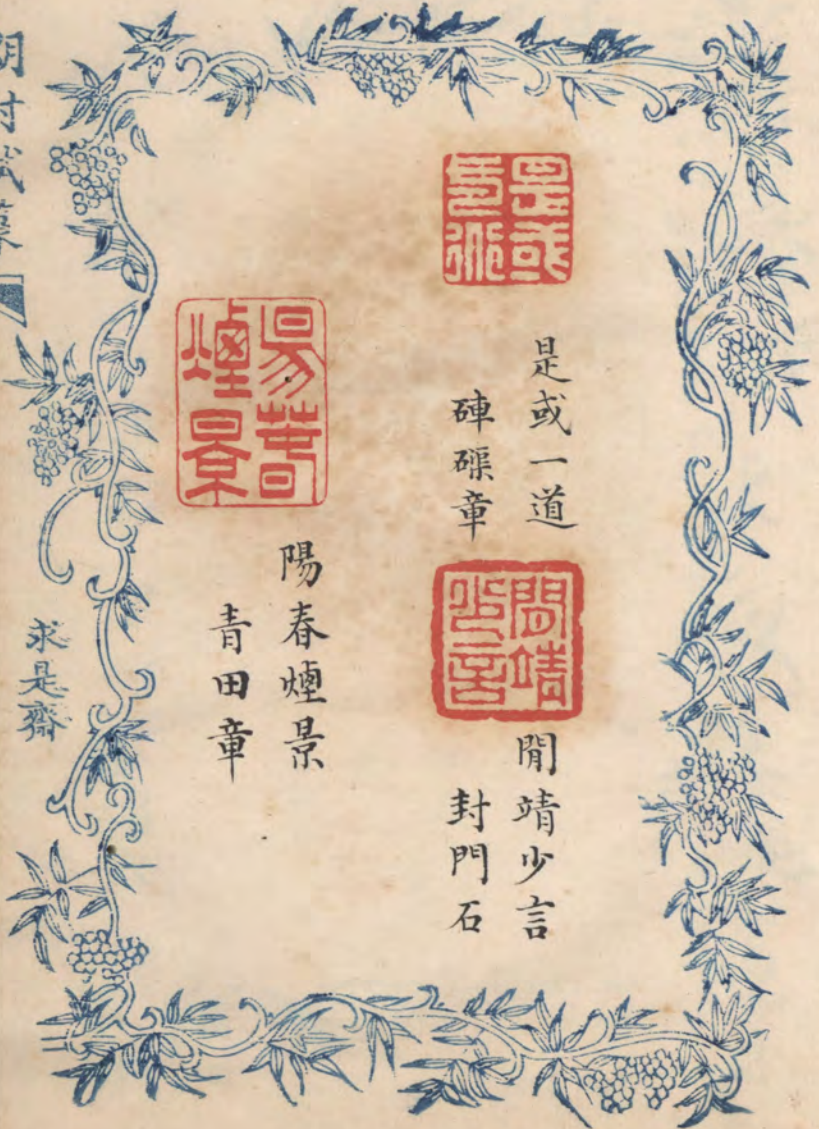 是或
是或一道
硨磲章
閒靖
少言
閒靖少言
封門石
昜萅
煙景
陽春煙景
青田章
求是齋